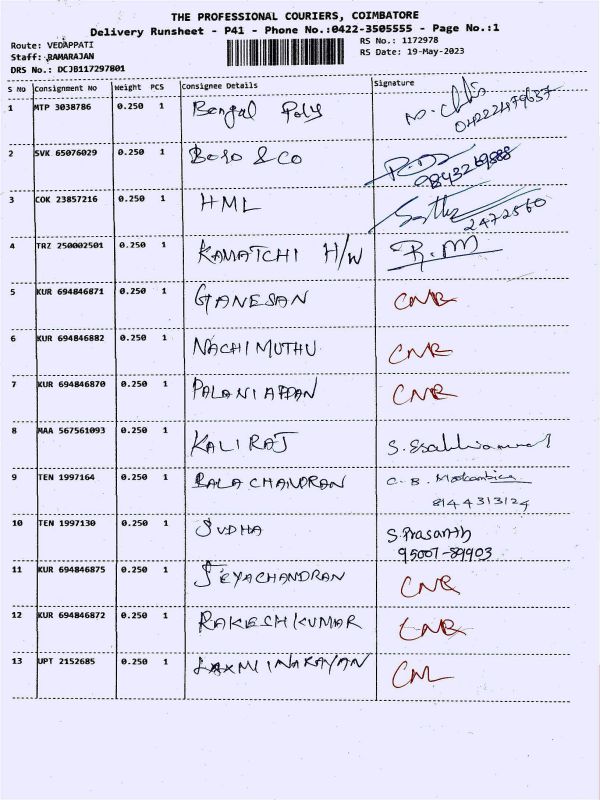 THE PROFESSIONAL COURIERS, COIMBATORE
Delivery Runsheet - P41 - Phone No.:0422-3505555 - Page No.:1
Route: VEDAPPATI
RS No.: 1172978
Staff: RAMARAJAN
RS Date: 19-May-2023
DRS No.: DCJB117297801
S No Consignment No Weight PCS Consignee Details Signature
1 MTP 3038786 0.250 1 Bengal Poly
2 SVK 65076029 0.250 1 Boso & Co
9843269888
3 COK 23857216 0.250 1 HML
2472560
4 TRZ 250002501 0.250 1 KAMATCHI H/W R.M
5 KUR 694846871 0.250 1 GANESAN CNR
6 KUR 694846882 0.250 1 NACHIMUTHU CNR
7 KUR 694846870 0.250 1 PALANIAPPAN CNR
8 MAA 567561093 0.250 1 KALIRAJ
9 TEN 1997164 0.250 1 BALACHANDRAN C. B. Mookambica
8144313124
10 TEN 1997130 0.250 1 SUDHA S. Prasanth
95007-89903
11 KUR 694846875 0.250 1 JEYACHANDRAN CNR
12 KUR 694846872 0.250 1 RAKESHKUMAR CNR
13 UPT 2152685 0.250 1 LAXMINARAYAN